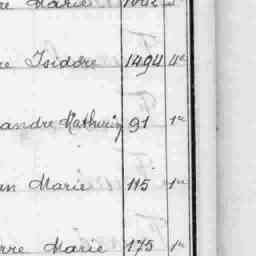 re Marie 1642
re Isidore 1494 4e
andre Mathurin 91 1er
an Marie 115 1er
rre Marie 175 1er